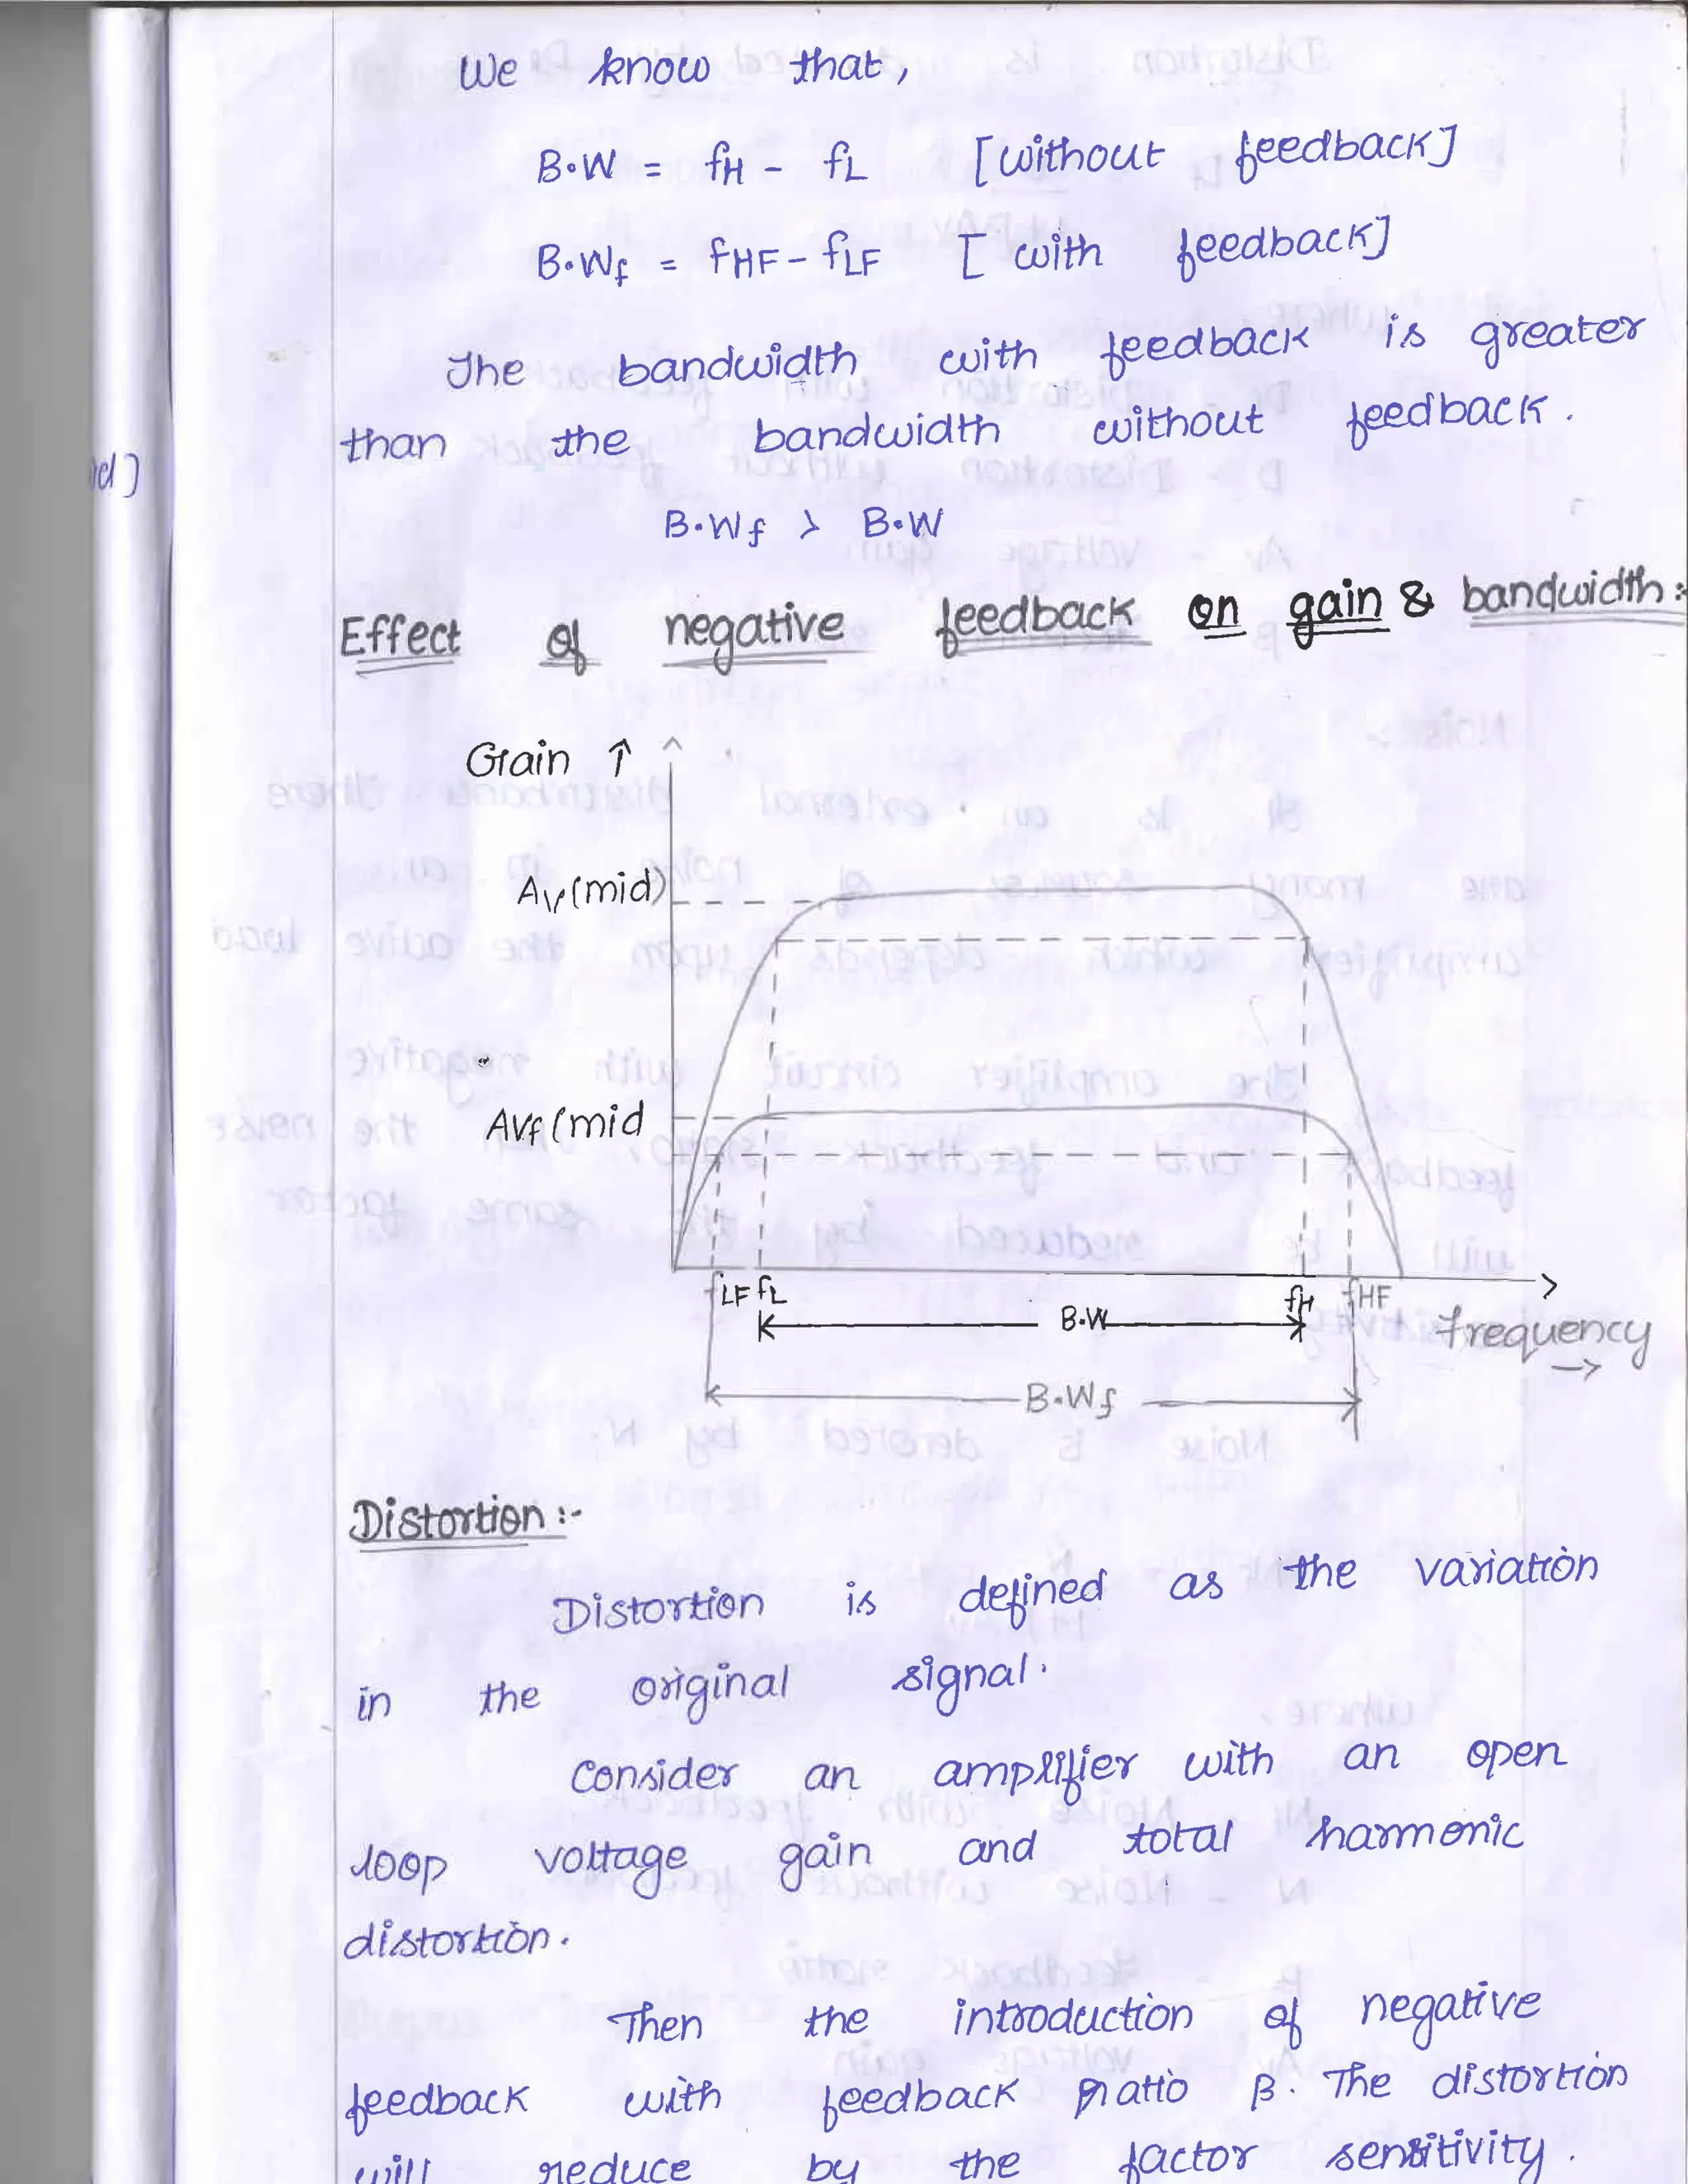 We know that,
B.W = fH - fL [without feedback]
B.Wf = fHF - fLF [with feedback]
The bandwidth with feedback is greater
than the bandwidth without feedback.
B.Wf > B.W
Effect of negative feedback on gain & bandwidth:-
Gain ↑
AV(mid)
AVf(mid
fLF fL fH fHF
B.W
frequency →
B.Wf
Distortion :-
Distortion is defined as the variation
in the original signal.
Consider an amplifier with an open
loop voltage gain and total harmonic
distortion.
Then the introduction of negative
feedback with feedback ratio β. The distortion
will reduce by the factor sensitivity.